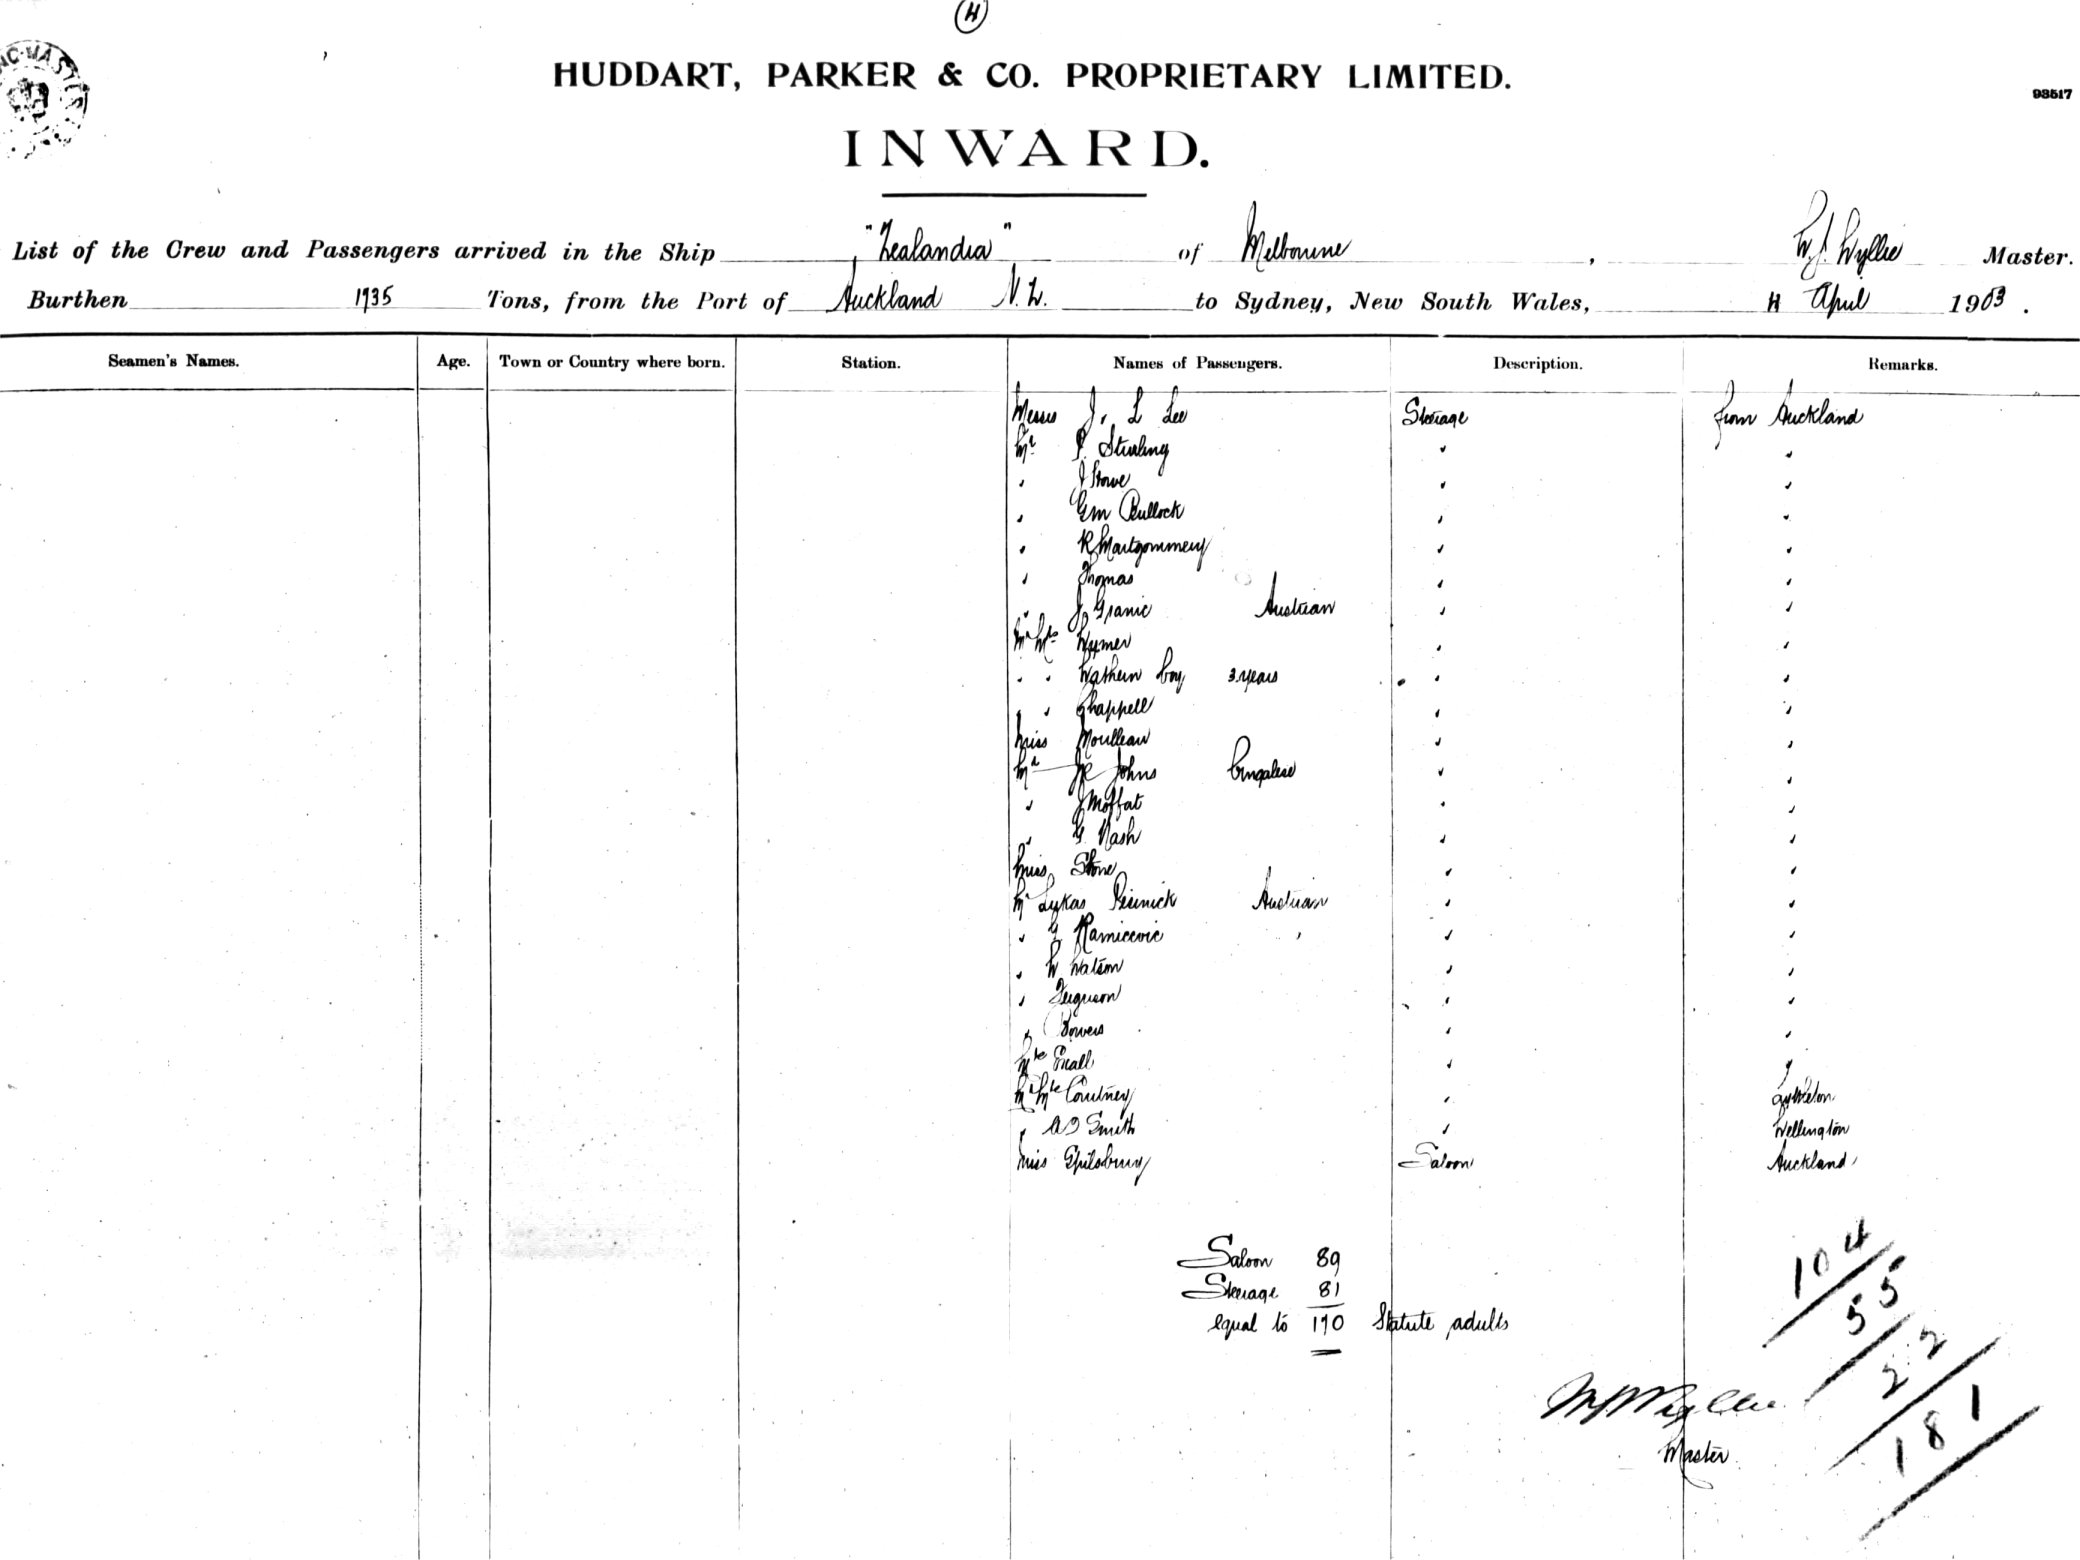 4
HUDDART, PARKER & CO. PROPRIETARY LIMITED.
93517
INWARD.
List of the Crew and Passengers arrived in the Ship "Zealandia" of Melbourne, W.J. Wyllie Master.
Burthen 1935 Tons, from the Port of Auckland N.Z. to Sydney, New South Wales, 4 April 1903.
Seamen's Names. Age. Town or Country where born. Station. Names of Passengers. Description. Remarks.
Messrs J, L Lee Steerage from Auckland
Mr P. Stirling " "
" J Stowe " "
" Gm Bullock " "
" R Martgommery " "
" Thomas " "
" J Granic Austrian " "
Mr Mrs Wymer " "
" " Wathern boy 3 years " "
" " Chappell " "
Miss Moulleau " "
Mr JR Johns Cingalese " "
" J Moffat " "
" G. Nash " "
Miss Stone " "
Mr Lykas Austrian " "
" G " " "
" W Watson " "
" Ferguson " "
" Bowers " "
Mrs Small " "
Mr Mrs Courtney " Lyttleton
" A J Smith " Wellington
Miss Spilsbury Saloon Auckland
Saloon 89
Steerage 81
equal to 170 Statute adults
104
55
22
181
W J Wyllie
Master